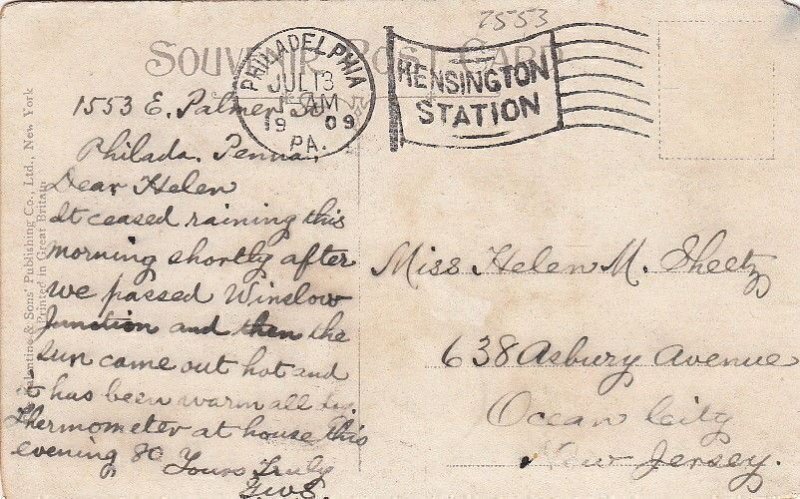 7553
SOUVENIR POST CARD
PHILADELPHIA
JUL 13
1 AM
1909
PA.
KENSINGTON
STATION
Valentine & Sons' Publishing Co., Ltd., New York
Printed in Great Britain
1553 E. Palmer St
Philada. Penna.
Dear Helen
It ceased raining this
morning shortly after
we passed Winslow
Junction and then the
sun came out hot and
it has been warm all day
Thermometer at house this
evening 80 Yours Truly
Miss Helen M. Sheetz
638 Asbury Avenue
Ocean City
New Jersey.